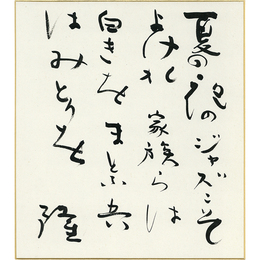 夏の夜のジャズこそ
よけれ 家族らは
白きを まとふ 吾
はみとりを